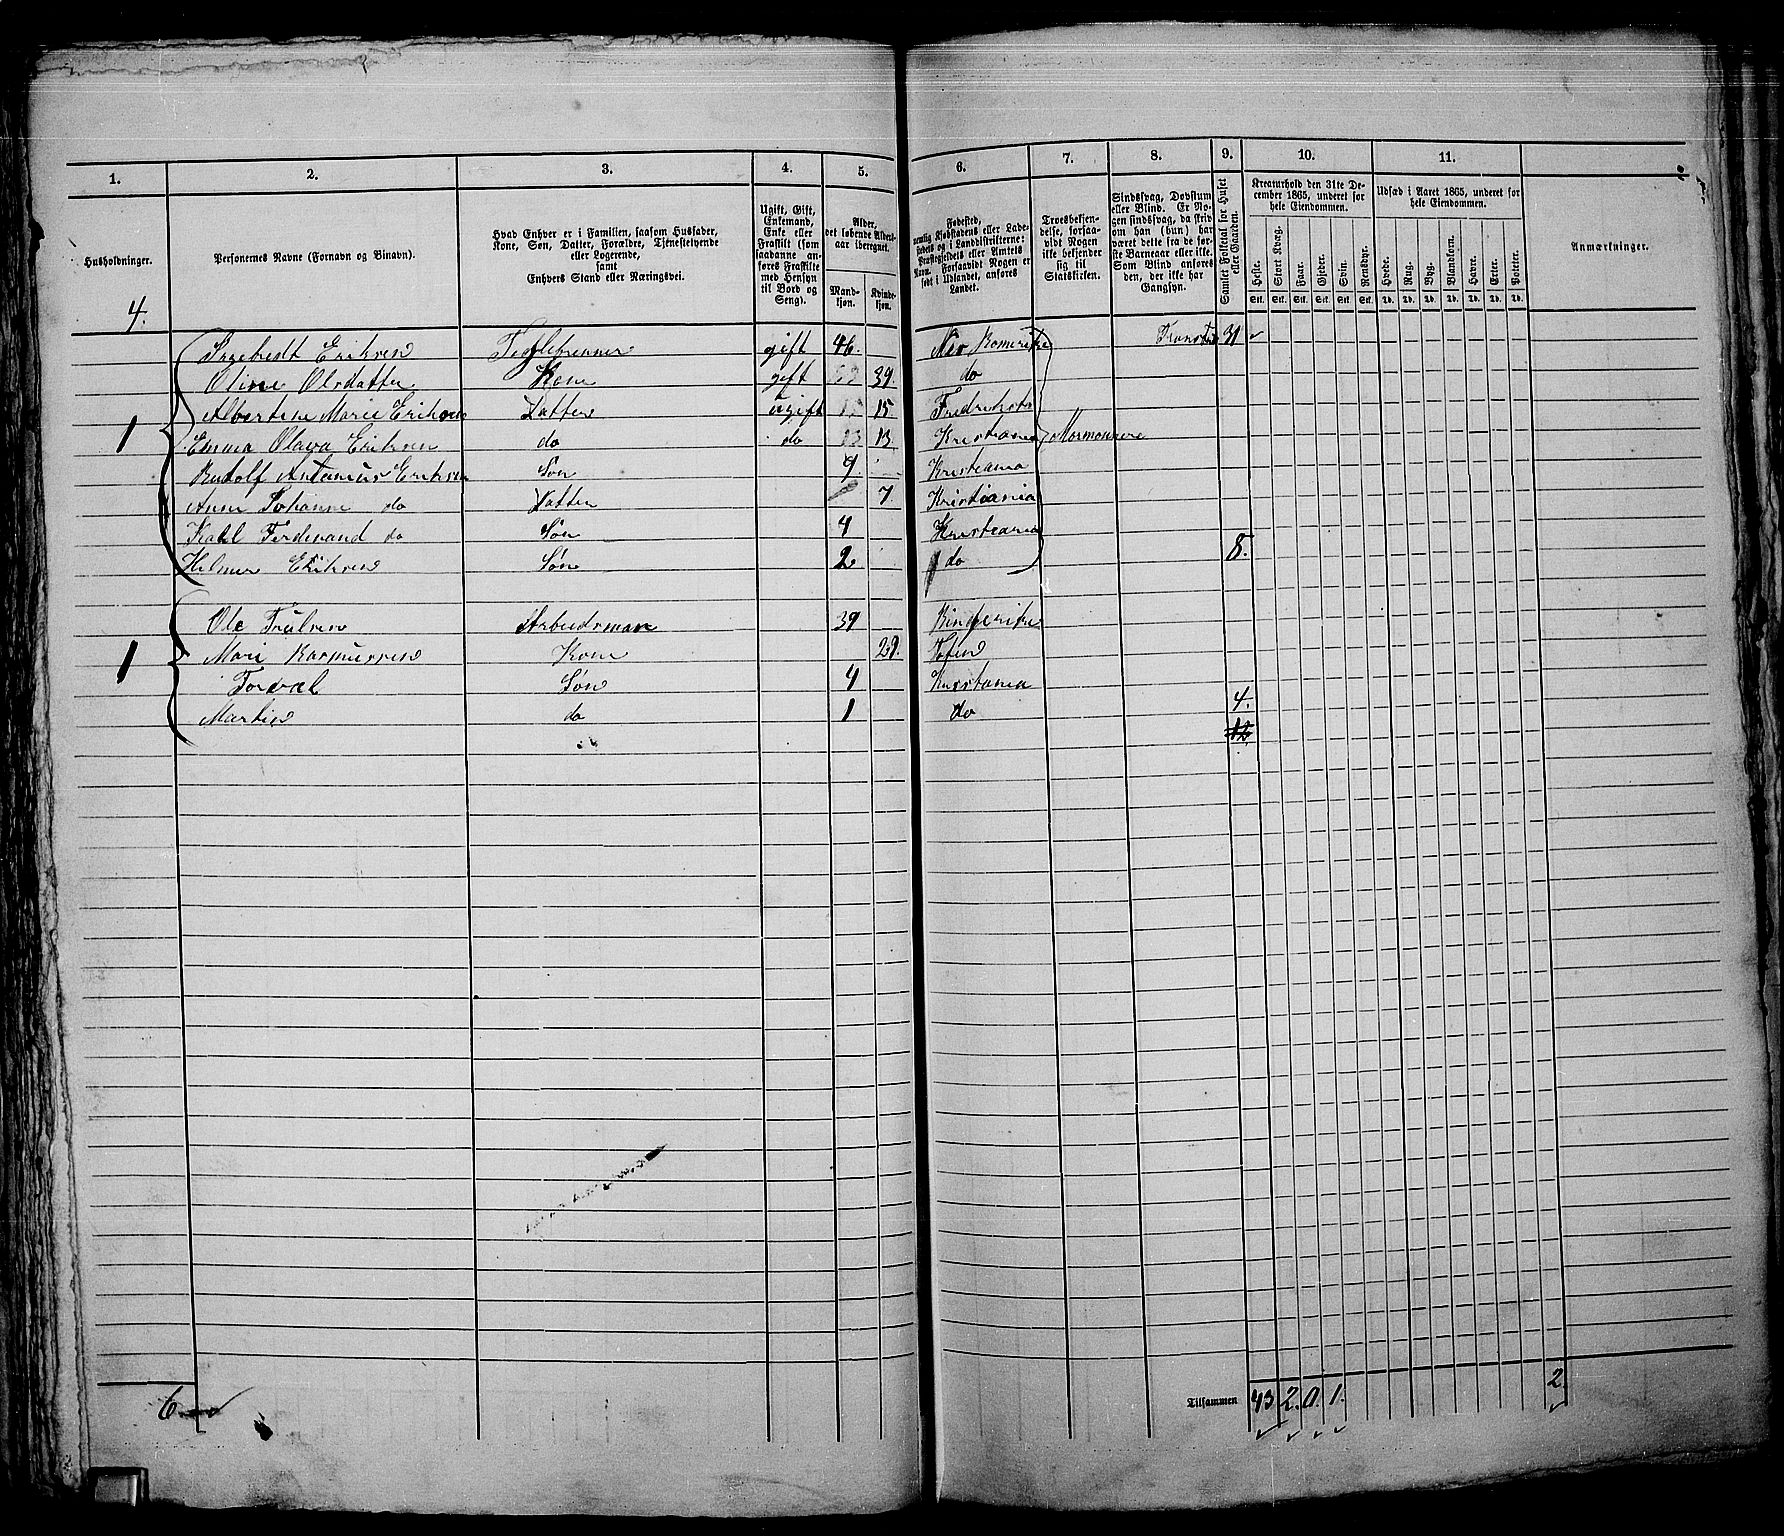 1. 2. 3. 4. 5. 6. 7. 8. 9. 10. 11.
Husholdninger.
Personernes Navne (Fornavn og Binavn).
Hvad Enhver er i Familien, saasom Husfader,
Kone, Søn, Datter, Forældre, Tjenestetyende
eller Logerende,
samt
Enhvers Stand eller Næringsvei.
Ugift, Gift,
Enkemand,
Enke eller
Fraskilt (som
saadanne an-
føres Fraskilte
med Hensyn
til Bord og
Seng).
Alder,
det løbende Alders-
aar iberegnet.
Mand-
kjøn.
Kvinde-
kjøn.
Fødested,
nemlig Kjøbstadens eller Lade-
stedets og i Landdistrikterne:
Præstegjeldets eller Amtets
Navn. Forsaavidt Nogen er
født i Udlandet, anføres
Landet.
Troesbekjen-
delse, forsaa-
vidt Nogen
ikke bekjender
sig til
Statskirken.
Sindssvag, Døvstum
eller Blind. Er No-
gen sindssvag, da skriv
om han (hun) har
været dette fra de før-
ste Barneaar eller ikke.
Som Blind anføres
den, der ikke har
Gangsyn.
Samlet Folketal for Huset
eller Gaarden.
Kreaturhold den 31te De-
cember 1865, underet for
hele Eiendommen.
Heste. Stort Kvæg. Faar. Gjeder. Svin. Rensdyr.
Stk. Stk. Stk. Stk. Stk. Stk.
Udsæd i Aaret 1865, underet for
hele Eiendommen.
Hvede. Rug. Byg. Blandkorn. Havre. Erter. Poteter.
Td. Td. Td. Td. Td. Td. Td.
Anmærkninger.
4.
Ingebredt Eriksen Teglebrenner gift 46. Nes Romerike Transport 31
Oline Olsdatter Kone gift 39. do
Albertine Marie Eriksen Datter ugift 15 15. Fredrikst
1 Emma Olava Eriksen do do 13 13. Kristiania Mormonere
Rudolf Antonius Eriksen Søn 9. Kristiania
Anne Johanne do Datter 7 Kristiania
Karl Ferdinand do Søn 4 Kristiania
Helmer Eriksen Søn 2 do 8.
Ole Trulsen Arbeidsman 39 Ringerike
1 Mari Rasmussen Kone 29. Toten
Torval Søn 4 Kristiania
Martin do 1 do 4.
12
6
Tilsammen 43 2. 0. 1. 2.